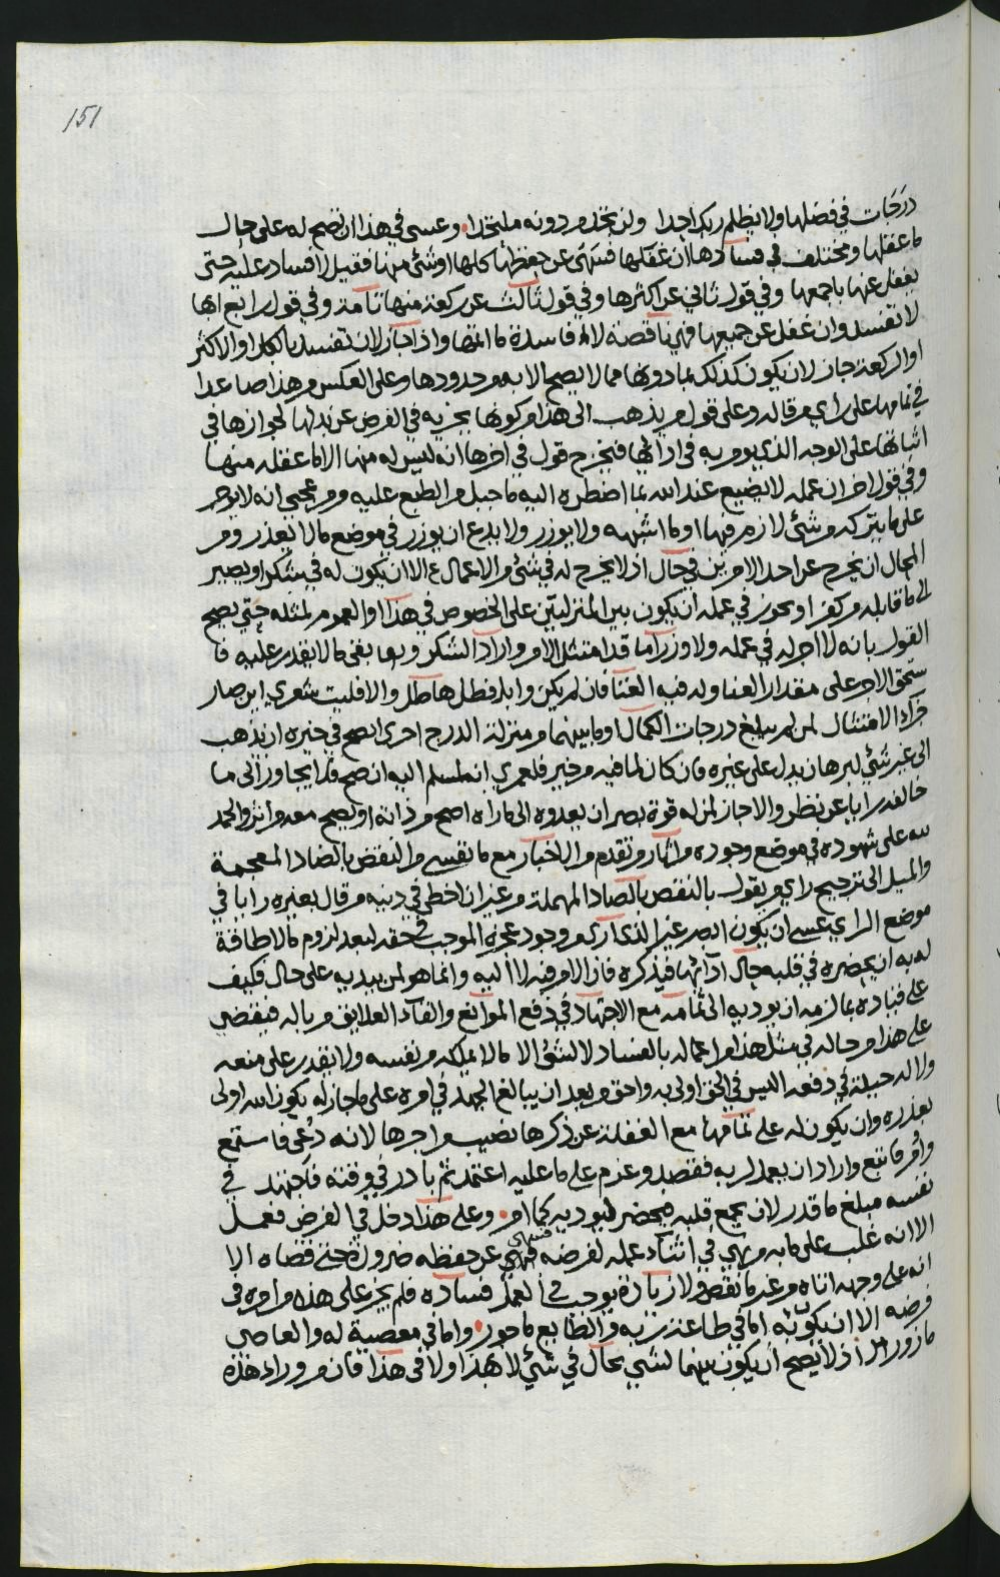 151
درجات في فضلها ولا يظلم ربك احدا ولن تجد من دونه ملتحدا وعسى في هذا ان تصح له على حال
ما عقلها ومختلف في فسادها ان غفلها فسهى عن حفظها كلها او شئ منها فقيل لا فساد عليه حتى
يغفل عنها باجمعها وفي قول ثاني عن اكثرها وفي قول ثالث عن ركعة منها تامة وفي قول رابع انها
لا تفسد وان غفل عن جميعها فهي ناقصة لا فاسدة كما اتمها واذا جاز لان تفسد بالكل او الاكثر
او الركعة جاز لان يكون كذلك بما دونها مما لا يصح الا به من حدودها وعلى العكس من هذا صاعدا
في تمامها على راي من قاله وعلى قول من يذهب الى هذا من كونها بحزيه في الفرض عن بدلها لجوازها في
اتيانها على الوجه الذي يومر به في ادائها فيخرج قول في اخرها انه ليس له منها الا ما عقله منها
وفي قول اخر ان عمله لا يضيع عند الله بما اضطره اليه ما جبل من الطبع عليه ومن عجبي انه لا يوجر
على ما يتركه من شئ لازم فيها او ما اشبهه ولا يوزر ولا بدع ان يوزر في موضع ما لا يعذر ومن
المحال ان يخرج عن احد الامرين في حال اذ لا يخرج له في شئ من الاعمال ع الا ان يكون له في شكر او يصير
الى ما قابله من كفر او يجوز في عمله ان يكون بين المنزلتين على الخصوص في هذا او العموم لمثله حتى يصح
القول بانه لا اجر له في عمله ولا وزر اما قد امتثل الامر واراد الشكر وبما بقى ما لا يقدر عليه فا
ستحق الاجر على مقدار العنا وله فيه الغنا فان لم يكن وابل فطل هاطل والا فليت شعري اين صار
جزاء الامتثال لمن لم يبلغ درجات الكمال او ما بينهما من منزلة الدرج احرى انصح في خيره ان يذهب
الى غير شئ لبرهان يدل على غيره فان كان لما فيه من خير فلعمري انه لمسلم اليه ان صح فلا يجاوز الى ما
خالفه رايا عن نظر والا جاز لمن له قوة بصر ان يعدوه الى ما راه اصح من ذاته او يصح معه من اثر والحمد
لله على شهوده في موضع وجوده من اثار وتقدم من الاخبار مع ما نفسي من النقض بالضاد المعجمة
والميل الى ترجيح راي من يقول بالنقص بالصاد المهملة من غير ان اخطي في دينه من قال بغيره رايا في
موضع الراي عسى ان يكون ابصر غير الذي ارى وجود عجزه الموجب في حقه لبعد لزوم ما لا طاقة
له به ان يحضره في قلبه حال ادائها فيذكره فان الامر فيه لا اليه وانما هو لمن بيديه على حال فكيف
على قياده بما لزمه ان يوديه الى تمامه مع الاجتهاد في دفع الموانع والقاء العلايق من باله فيقضي
على هذا من حاله في مثل هذا من اعماله بالفساد لا لشئ الا ما لا يملكه من نفسه ولا يقدر على منعه
ولا له حيلة في دفعه اليس في الحق اولى به واحق من بعد ان يبالغ الجهد في امره على ما جاز له يكون الله اولى
بعذره وان يكون له على تمامها مع الغفلة عن ذكرها نصيب من اجرها لانه دعى فاستمع
وامر فاتبع واراد ان يعمل لربه فقصد وعزم على ما عليه اعتمد ثم بادر في وقته فاجتهد في
نفسه مبلغ ما قدر لان يجمع قلبه فيحضر ليوديه كما امر وعلى هذا دخل في الفرض فعمل
الا انه غلب على ما به من سهى في اثناء عمله لفرضه فسهى عن حفظه ضرورة حتى قضاه الا
انه على وجهه اتاه من غير ما نقص ولا زيادة يوجب في العمل فساده فلم يخر على هذا من امره في
فرضه الا ان يكون به اما في طاعة ربه والطايع ماجور واما في معصية له والعاصي
مازور اذ لا يصح ان يكون بينهما لشي بحال في شئ لا بهذا ولا في هذا فان من وراء هذه